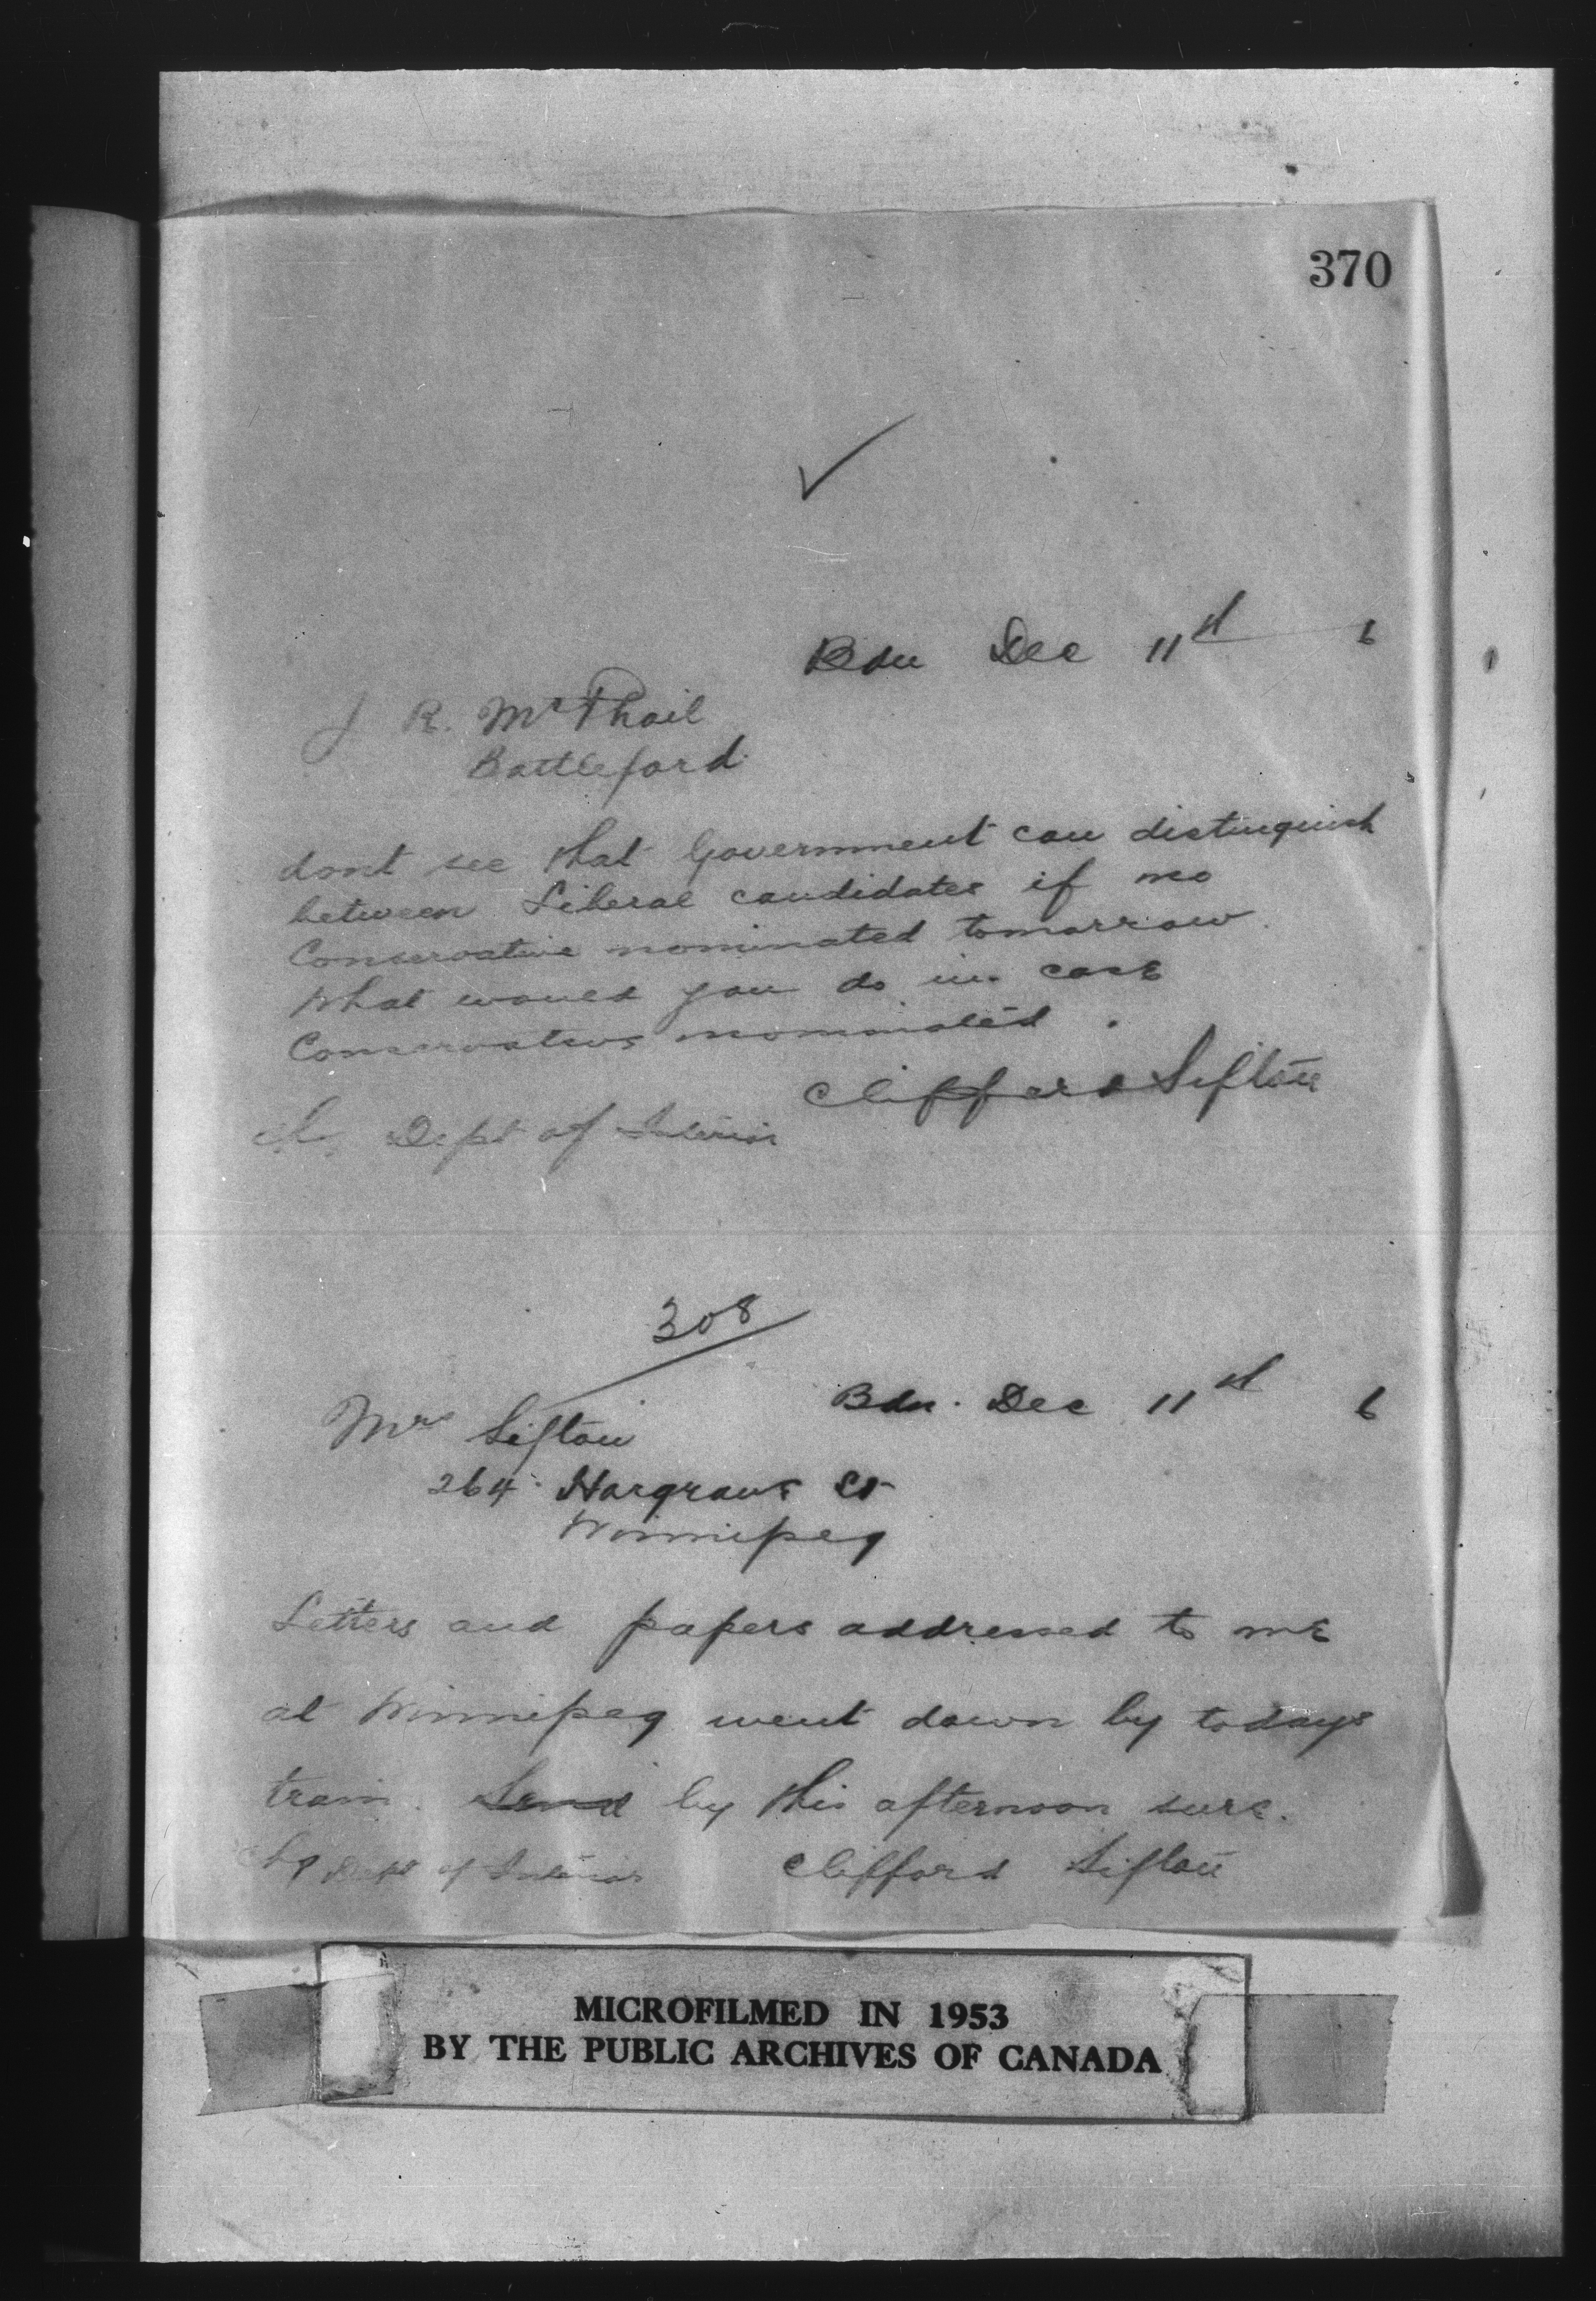 370
Bdn Dec 11st 6
J R. McPhail
Battleford
dont see that Government can distinguish
between Liberal candidates if no
Conservative nominated tomorrow.
What would you do in case
Conservatives nominated.
Clifford Sifton
Dept of Interior
308
Bdn. Dec 11st 6
Mrs Sifton
264 Hargrave St
Winnipeg
Letters and papers addressed to me
at Winnipeg went down by todays
train. Send by this afternoon sure.
Chg Dept of Interior Clifford Sifton
MICROFILMED IN 1953
BY THE PUBLIC ARCHIVES OF CANADA